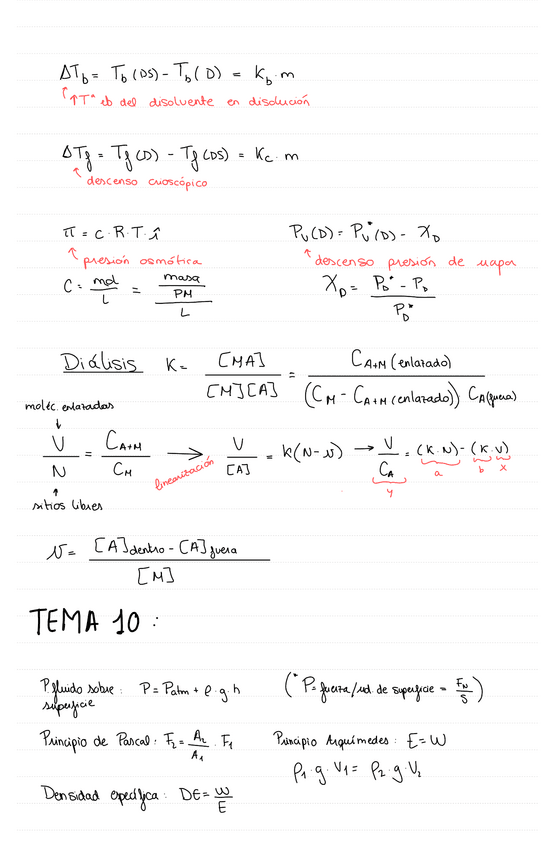 ΔT_b = T_b (DS) - T_b (D) = K_b · m
↑ ↑Tª eb del disolvente en disolución
ΔT_f = T_f (D) - T_f (DS) = K_c · m
↑ descenso crioscópico
π = c · R · T · i
P_v (D) = P_v* (D) - X_D
↑ presión osmótica
↑ descenso presión de vapor
C = mol / L = (masa / PM) / L
X_D = (P_D* - P_D) / P_D*
Diálisis K = [MA] / [M][A] = C_A+M (enlazado) / (C_M - C_A+M (enlazado)) C_A (fuera)
moléc. enlazadas
↓
V / N = C_A+M / C_M → linearización V / [A] = K(N - ν) → V / C_A = (K · N) - (K · ν)
y a b x
↑
sitios libres
ν = ([A] dentro - [A] fuera) / [M]
TEMA 10 :
P. fluido sobre superficie : P = Patm + ρ · g · h
(* P = fuerza/ud. de superficie = F_N / S)
Principio de Pascal : F_2 = A_2 / A_1 · F_1
Principio Arquímedes : E = W
ρ_1 · g · V_1 = ρ_2 · g · V_2
Densidad específica : DE = W / E